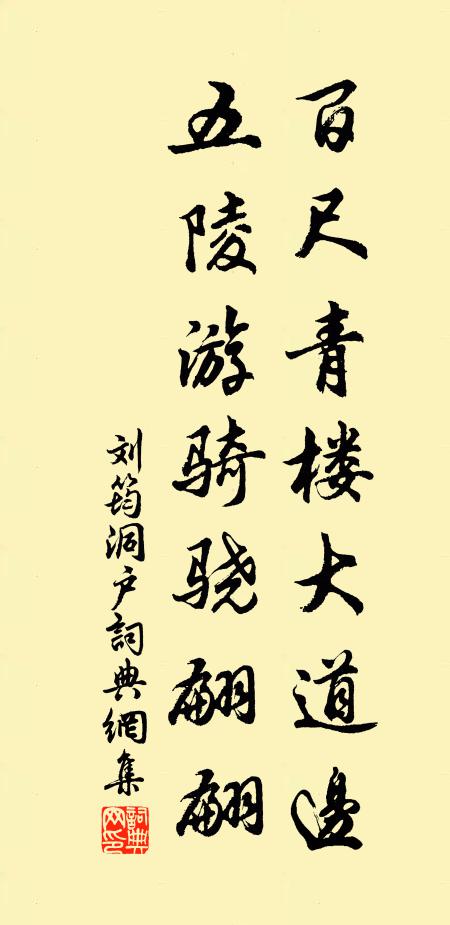 百尺青楼大道邊
五陵游骑骁翩翩
刘筠洞户詞典網集
詞典網印